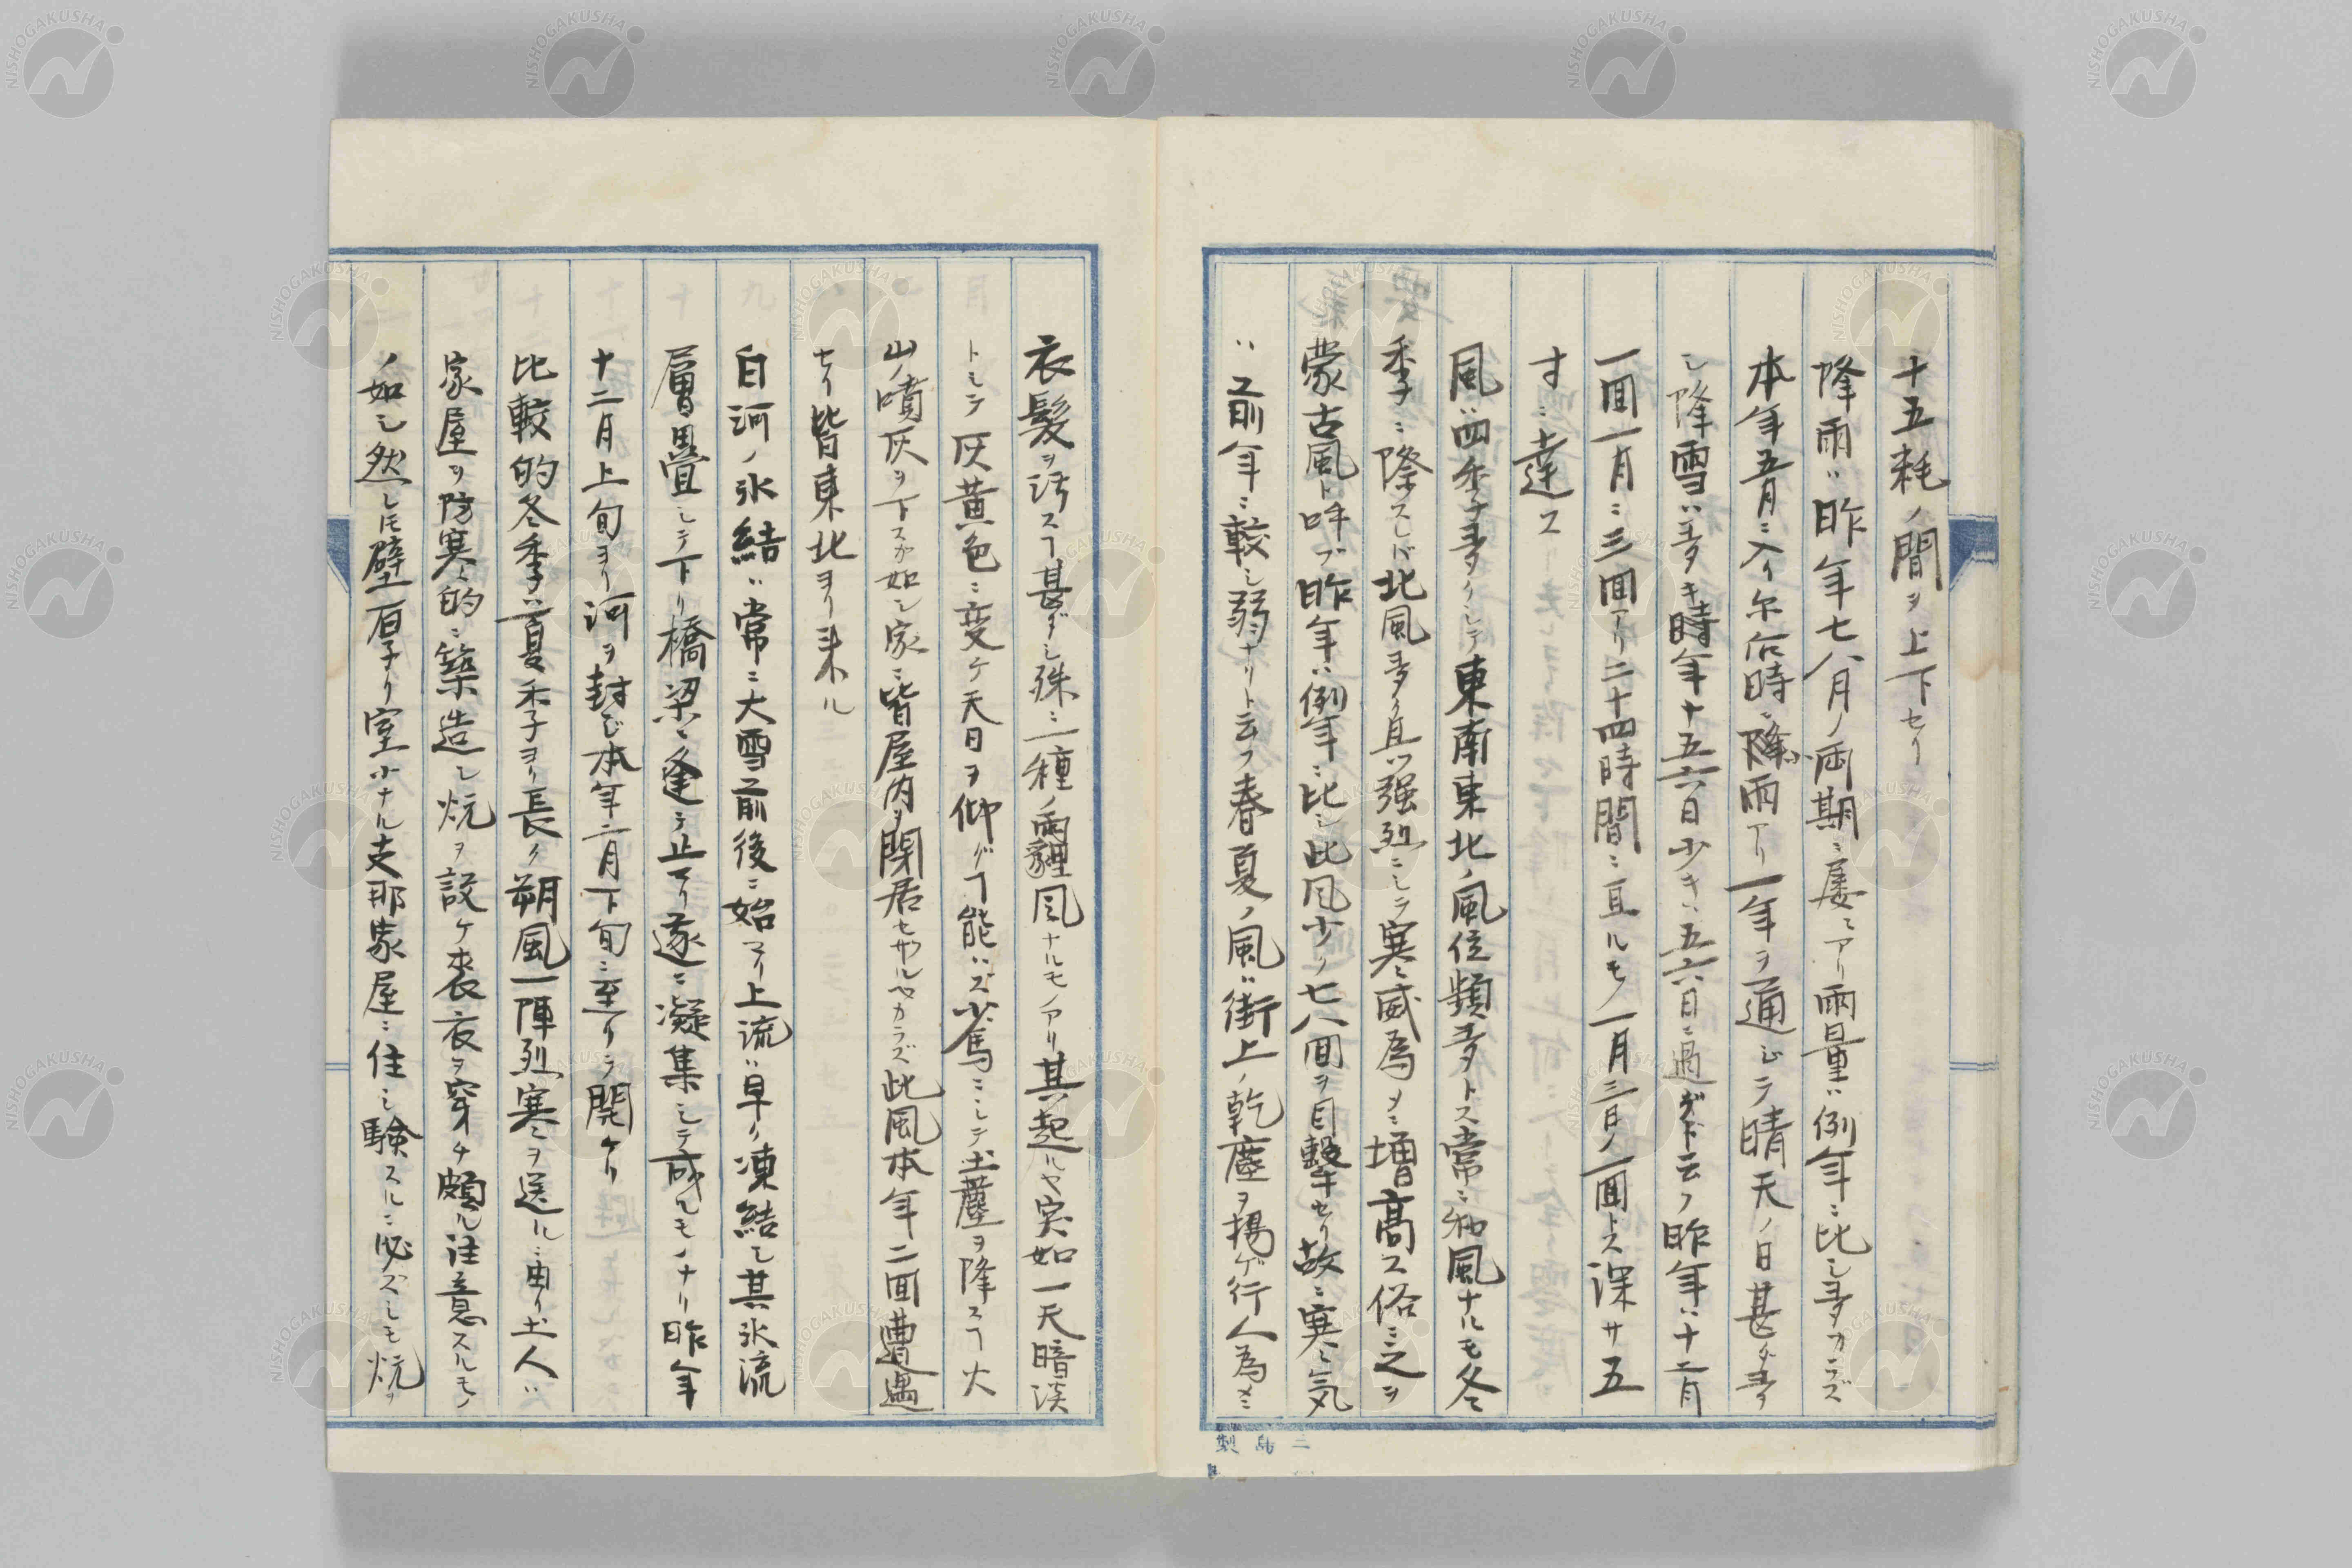 十五耗ノ間ヲ上下セリ
降雨ハ昨年七八月ノ両期ニ屡々アリ雨量ハ例年ニ比シ多カラズ
本年五月ニ入リ尓后時々降雨アリ一年ヲ通ジテ晴天ノ日甚ダ多
シ降雪ハ多キ時年十五六日少キハ五六日ニ過ギズト云フ昨年ハ十二月
一回一月ニ三回アリ二十四時間ニ亘ルモノ一月三日ノ一回トス深サ五
寸ニ達ス
風ハ四季多クシテ東南東北ノ風位頻多トス常ニ和風ナルモ冬
季ニ際スレバ北風多ク且ツ强烈ニシテ寒威為メニ増高ス俗ニ之ヲ
蒙古風ト呼ブ昨年ハ例年ニ比シ此風少ク七八回ヲ目撃セリ故ニ寒気
ハ前年ニ較シ弱ナリト云フ春夏ノ風ハ街上ノ乾塵ヲ揚ゲ行人為メニ
衣髪ヲ汚スヿ甚ダシ殊ニ一種ノ雨霾風ナルモノアリ其起ルヤ実如一天暗淡
トシテ灰黄色ニ変ケ天日ヲ仰グヿ能ハズ少焉ニシテ土塵ヲ降スヿ火
山ノ噴灰ヲ下スガ如シ家ニ皆屋内ニ閑居セザルベカラズ此風本年二回遭遇
セリ皆東北ヨリ来ル
白河ノ氷結ハ常ニ大雪前後ニ始マリ上流ハ早ク凍結シ其氷流
層畳シテ下リ橋梁ニ逢テ止マリ遂ニ凝集シテ成ルモノナリ昨年
十二月上旬ヨリ河ヲ封ジ本年二月下旬ニ至リテ開ケリ
比較的冬季ハ夏季ヨリ長ク朔風一陣烈寒ヲ送ルニ由リ土人ハ
家屋ヲ防寒的ニ築造シ炕ヲ設ケ裘衣ヲ穿チ頗ル注意スルモノ
ノ如シ然レ𪜈壁厚ク室小ナル支那家屋ニ住シ験スルニ必ズシモ炕ヲ
製島二